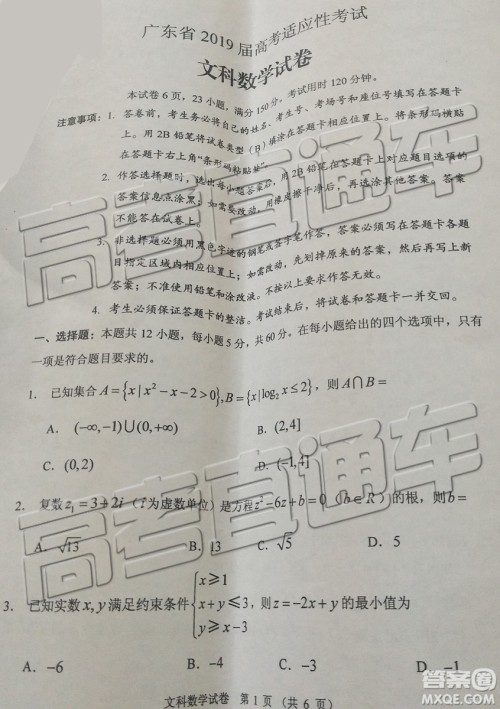 广东省 2019 届高考适应性考试
文科数学试卷
本试卷 6 页，23 小题，满分 150 分。考试用时 120 分钟。
注意事项：1. 答卷前，考生务必将自己的姓名、考生号、考场号和座位号填写在答题卡
上。用 2B 铅笔将试卷类型（B）填涂在答题卡相应位置上。将条形码横贴
在答题卡右上角“条形码粘贴处”。
2. 作答选择题时，选出每小题答案后，用 2B 铅笔在答题卡上对应题目选项的
答案信息点涂黑；如需要改动，用橡皮擦干净后，再选涂其他答案。答案
不能答在试卷上。
3. 非选择题必须用黑色字迹的钢笔或签字笔作答，答案必须写在答题卡各题
目指定区域内相应位置上；如需改动，先划掉原来的答案，然后再写上新
答案；不准使用铅笔和涂改液。不按以上要求作答无效。
4. 考生必须保证答题卡的整洁。考试结束后，将试卷和答题卡一并交回。
一、选择题：本题共 12 小题，每小题 5 分，共 60 分。在每小题给出的四个选项中，只有
一项是符合题目要求的。
1. 已知集合 A={x|x²−x−2>0}, B={x|log₂x≤2}，则 A∩B=
A. (−∞,−1)∪(0,+∞) B. (2,4]
C. (0,2) D. (−1,4]
2. 复数 z₁=3+2i（i 为虚数单位）是方程 z²−6z+b=0（b∈R）的根，则 b=
A. √13 B. 13 C. √5 D. 5
3. 已知实数 x,y 满足约束条件 {x≥1 x+y≤3 y≥x−3，则 z=−2x+y 的最小值为
A. −6 B. −4 C. −3 D. −1
文科数学试卷 第 1 页（共 6 页）
高考直通车
高考直通车
答案圈
MXQE.COM